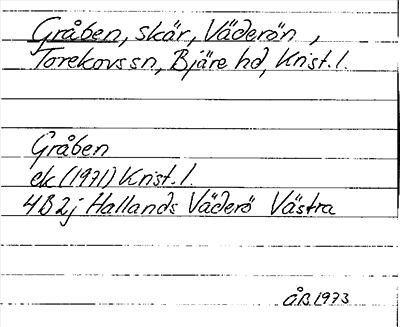 Gråben, skär, Väderön,
Torekovs sn, Bjäre hd, Krist. l.
Gråben
ek (1971) Krist. l.
4B2j Hallands Väderö Västra
ÅB.1973